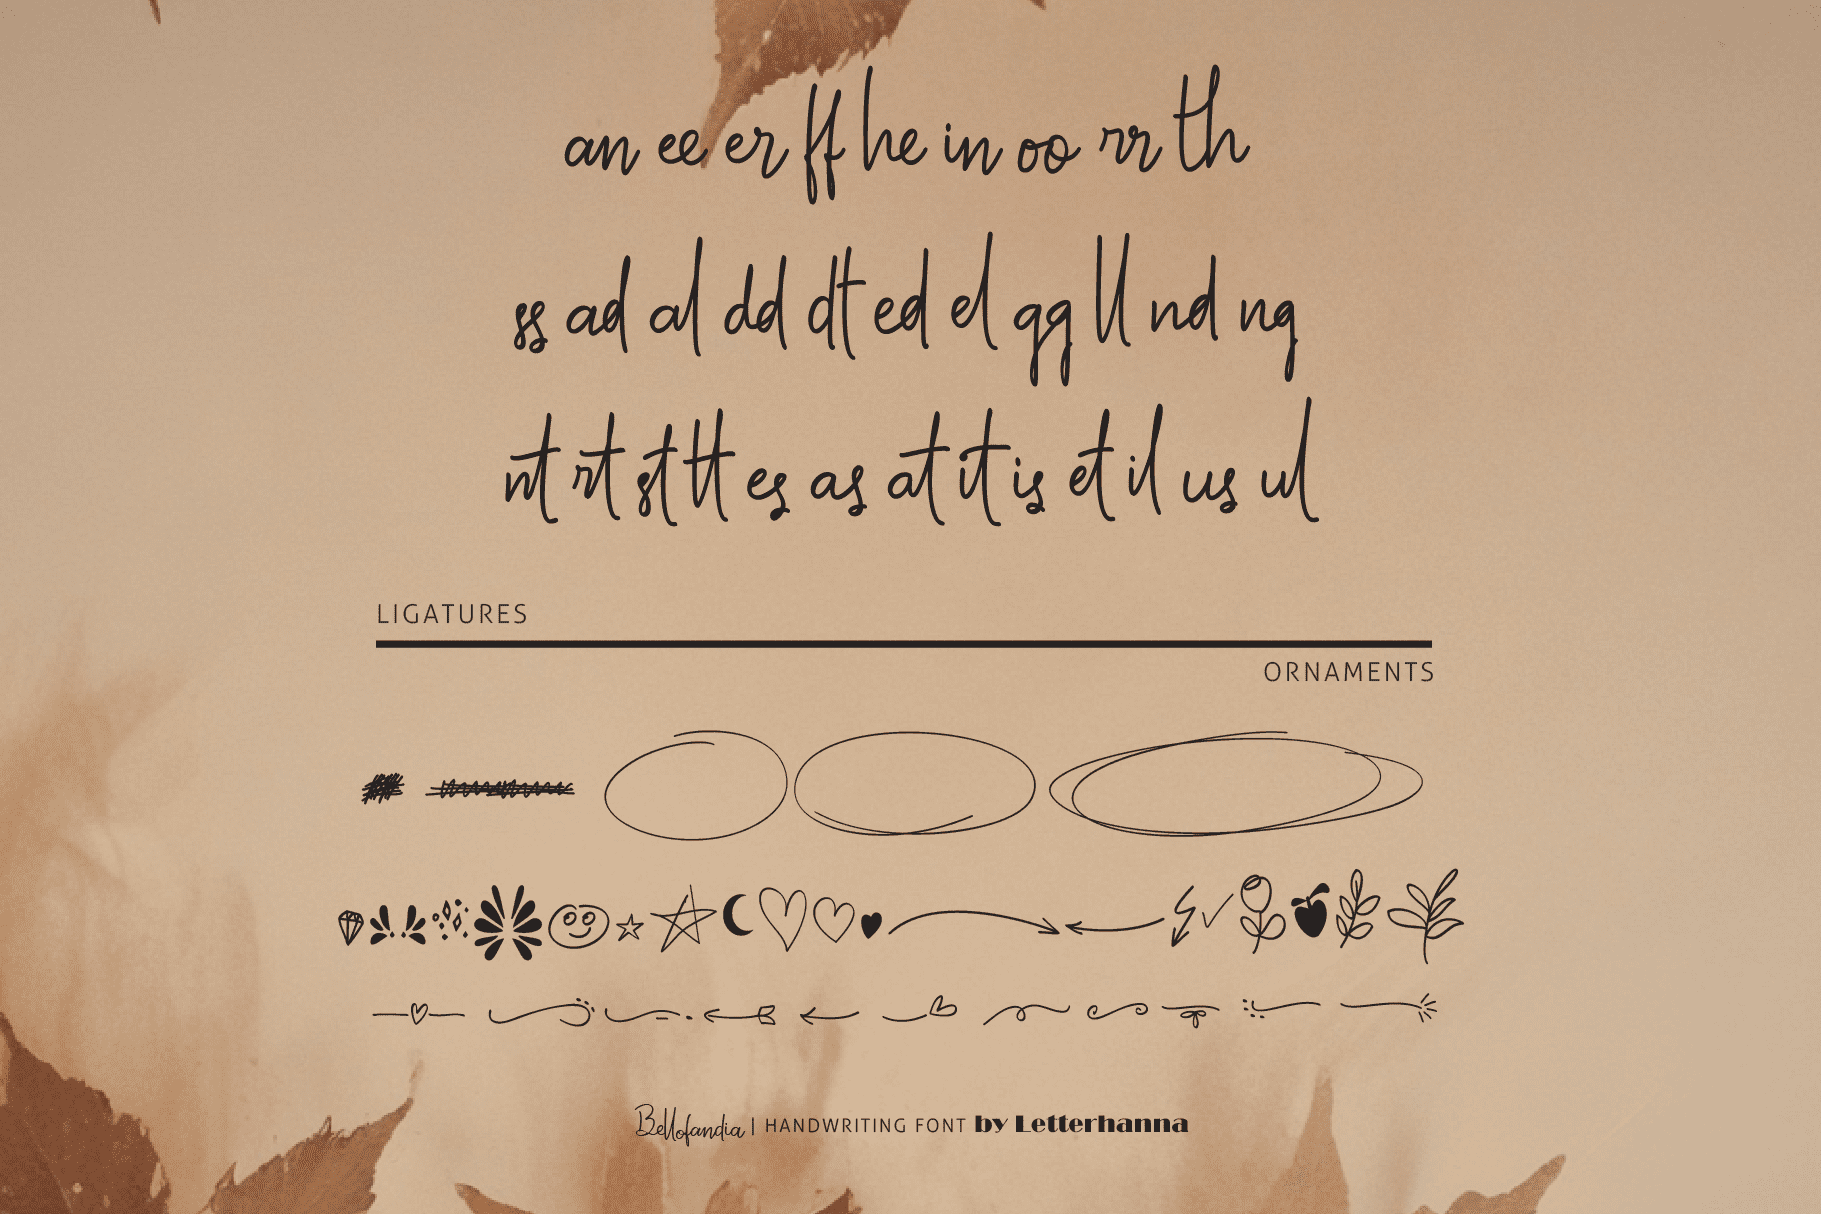 an ee er ff he in oo rr th
ss ad al dd dt ed el gg ll nd ng
nt rt st tt es as at it is et il us ul
LIGATURES
ORNAMENTS
Bellofandia | HANDWRITING FONT by Letterhanna